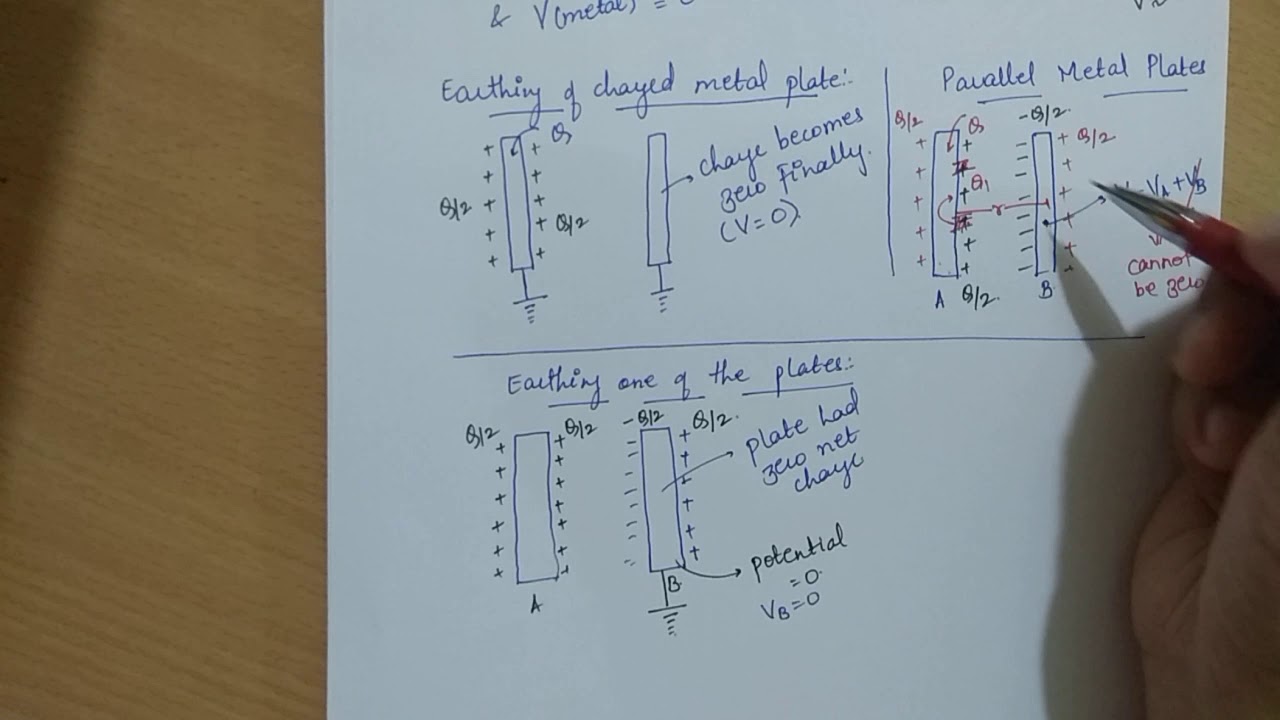 & V(metal) =
Earthing of charged metal plate:
Q
+ + + + +
+ + + + +
Q/2
Q/2
charge becomes
zero finally.
(V=0)
Parallel Metal Plates
Q/2
Q
-Q/2
Q/2
Q1
r
VA + VB
cannot
be zero
A
Q/2.
B
Earthing one of the plates:
Q/2
Q/2
-Q/2
Q/2.
plate had
zero net
charge
A
B
potential
= 0.
VB = 0